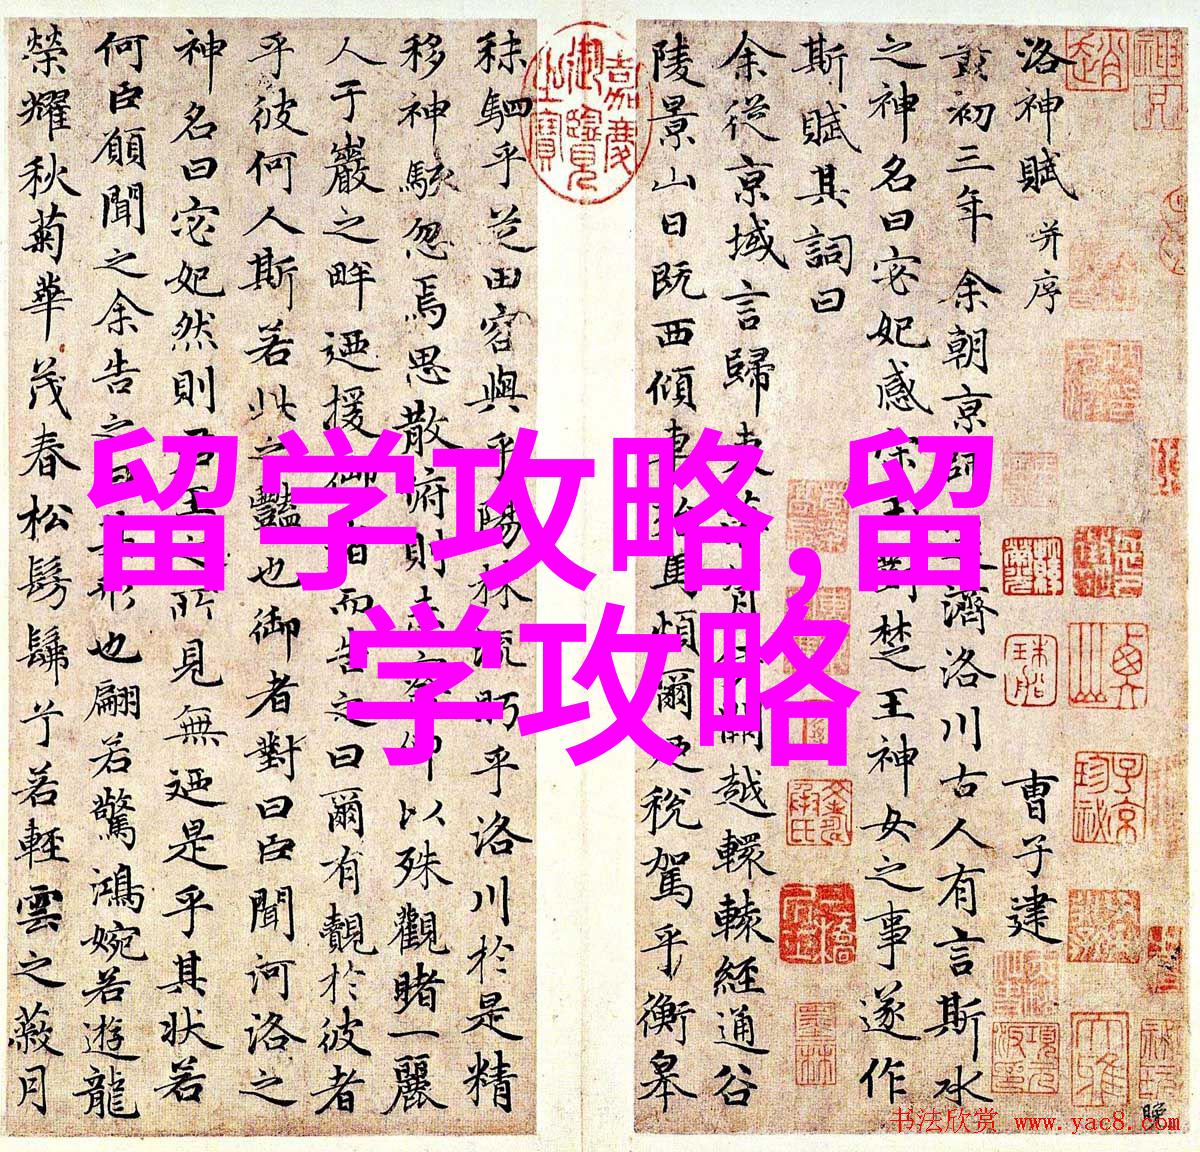 留学攻略,留
学攻略
洛神賦 并序 曹子建
黃初三年余朝京師還濟洛川古人有言斯水
之神名曰宓妃感宋玉對楚王神女之事遂作
斯賦其詞曰
余從京域言歸東藩背伊闕越轘轅經通谷
陵景山日既西傾車殆馬煩爾乃稅駕乎衡皋
秣駟乎芝田容與乎陽林流眄乎洛川於是精
移神駭忽焉思散府則未察仰以殊觀睹一麗
人于巖之畔迺援御者而告之曰爾有覿於彼者
乎彼何人斯若此之豔也御者對曰臣聞河洛之
神名曰宓妃然則君王之所見無迺是乎其狀若
何臣願聞之余告之曰其形也翩若驚鴻婉若遊龍
榮耀秋菊華茂春松髣髴兮若輕雲之蔽月
嘉慶御覽之寶
书法欣赏 www.yac8.com